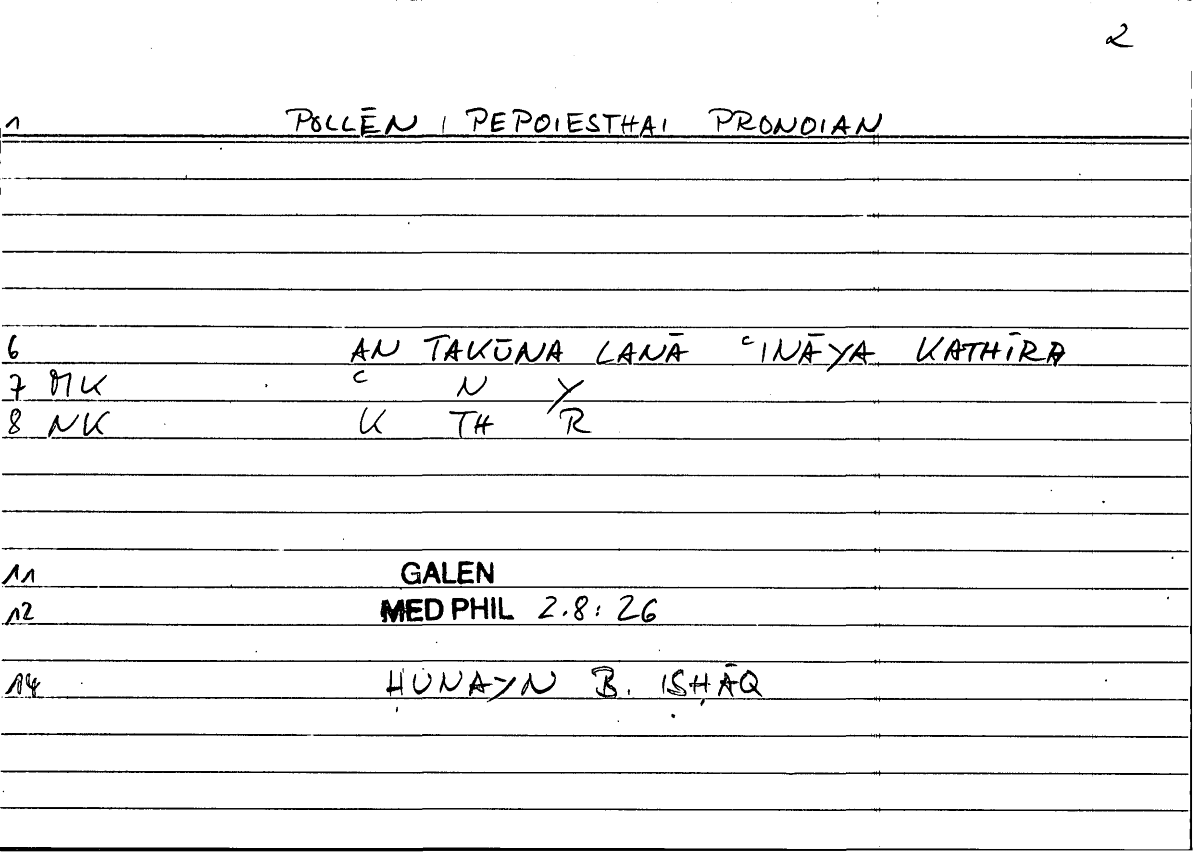 2
1 POLLĒN | PEPOIESTHAI PRONOIAN
6 AN TAKŪNA LANĀ ʿINĀYA KATHĪRA
7 MK ʿ N Y
8 NK K TH R
11 GALEN
12 MED PHIL 2.8:26
14 ḤUNAYN B. ISḤĀQ